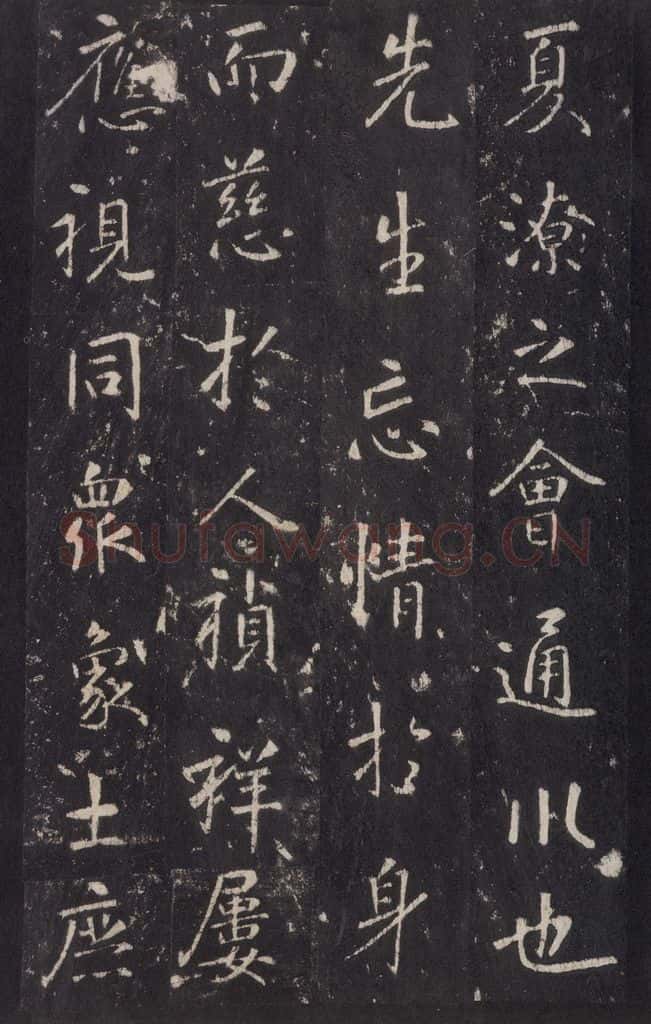 夏潦之會通川也
先生忘情扵身
而慈扵人禎祥屢
應視同衆象士庶
Shufawang.CN